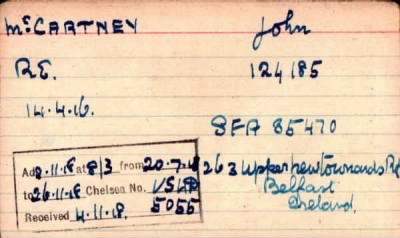 McCARTNEY John
R.E. 124185
14.4.16.
SFA 85470
Ad 8.11.18 at 8/3 from 20.7.18
to 26.11.18 Chelsea No. VS
Received 4.11.18. 5055
263 Upper newtownards Rd
Belfast
Ireland.